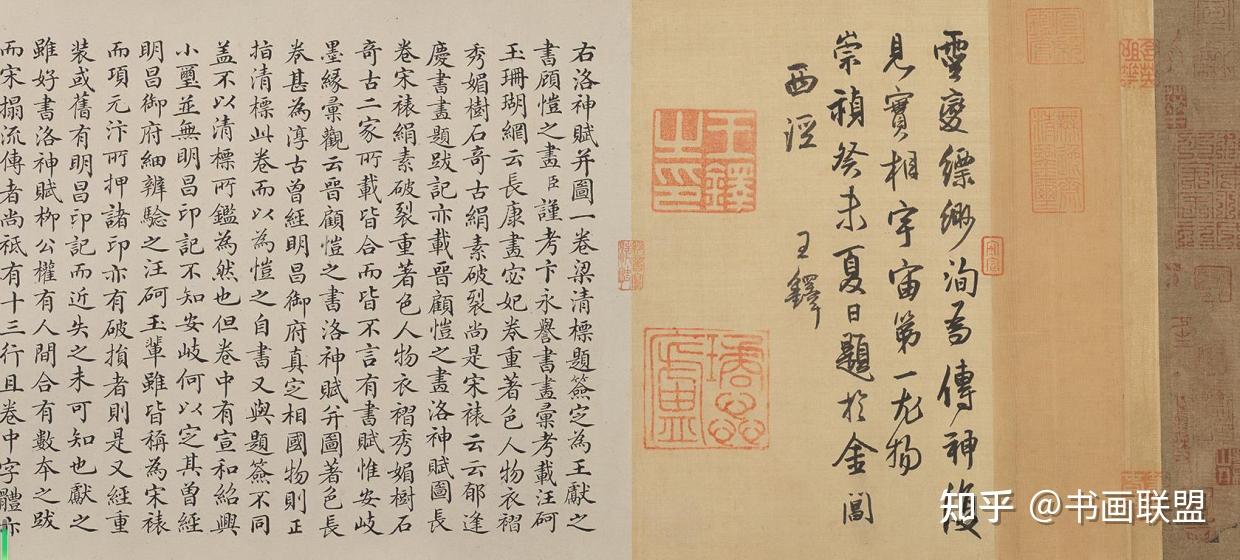 靈變縹緲洵為傳神復
見寶相宇宙第一尤物
崇禎癸未夏日題於金閶
西涇
王鐸
王鐸之印
右洛神賦并圖一卷梁清標題簽定為王獻之
書顧愷之畫臣謹考卞永譽書畫彙考載汪砢
玉珊瑚網云長康畫宓妃卷重著色人物衣褶
秀媚樹石奇古絹素破裂尚是宋裱云云郁逢
慶書畫題跋記亦載晉顧愷之畫洛神賦圖長
卷宋裱絹素破裂重著色人物衣褶秀媚樹石
奇古二家所載皆合而皆不言有書賦惟安岐
墨緣彙觀云晉顧愷之書洛神賦并圖著色長
卷甚為淳古曾經明昌御府真定相國物則正
指清標此卷而以為愷之自書又與題簽不同
蓋不以清標所鑑為然也但卷中有宣和紹興
小璽並無明昌印記不知安岐何以定其曾經
明昌御府細辨驗之汪砢玉輩雖皆稱為宋裱
而項元汴所押諸印亦有破損者則是又經重
裝或舊有明昌印記而近失之未可知也獻之
雖好書洛神賦柳公權有人間合有數本之跋
而宋搨流傳者尚祗有十三行且卷中字體亦
知乎 @书画联盟